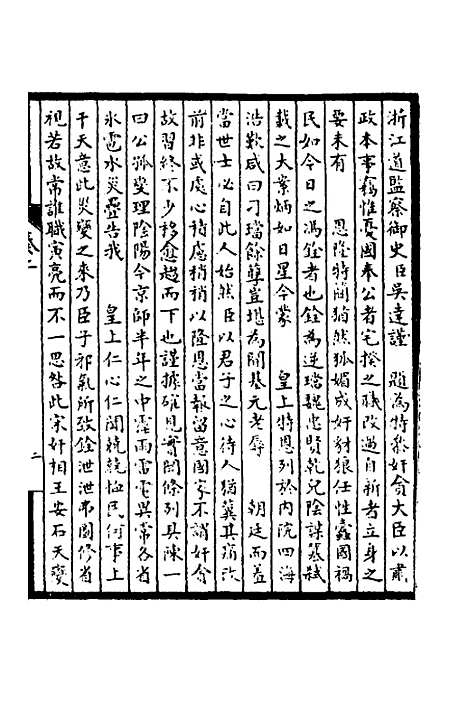 浙江道監察御史臣吳達謹　題為特參奸貪大臣以肅
政本事竊惟憂國奉公者宅揆之職改過自新者立身之
要未有　恩隆特簡猶然狐媚成奸豺狼任性蠹國禍
民如今日之馮銓者也銓為逆璫魏忠賢乾兒陰謀篡弒
載之大案炳如日星今蒙　皇上特恩列於內院四海
浩歎咸曰刁璫餘孽豈堪為開基元老辱　朝廷而羞
當世士必自此人始然臣以君子之心待人猶冀其痛改
前非或處心待慮稍稍以隆恩當報留意國家不誚奸貪
故習終不少移愈趨而下也謹據確見實聞條列具陳一
曰公孤燮理陰陽今京師半年之中霪雨雷電異常各省
氷雹水災疊告我　皇上仁心仁聞兢兢恤民何事上
干天意此災變之來乃臣子邪氣所致銓泄泄弗圖修省
視若故常誰職寅亮而不一思咎此宋奸相王安石天變
卷二
二